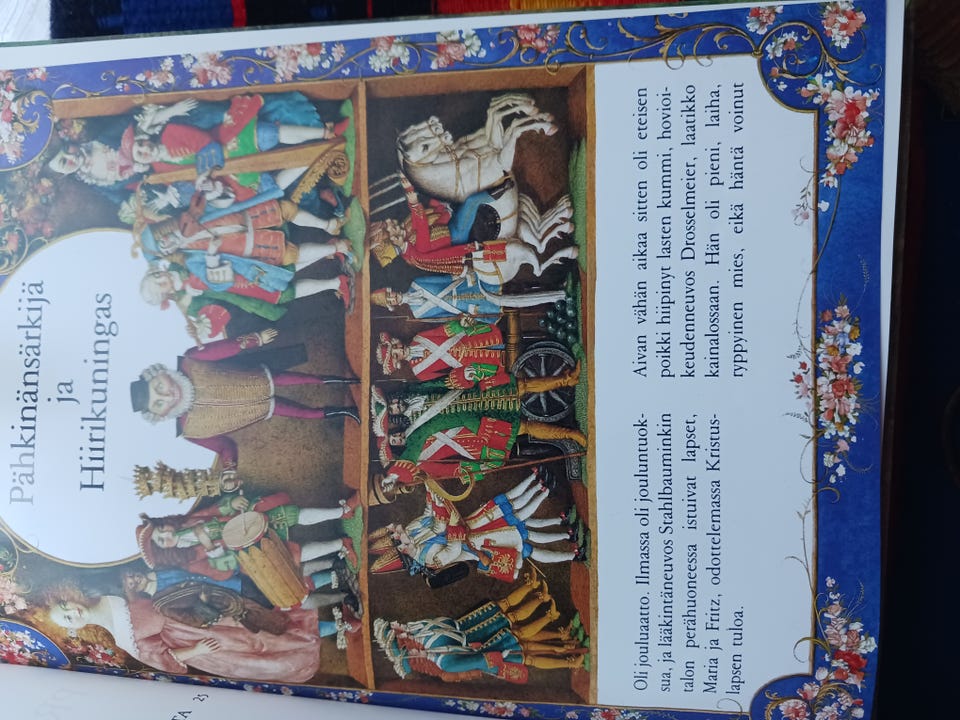 Pähkinänsärkijä
ja
Hiirikuningas
Oli jouluaatto. Ilmassa oli jouluntuok-
sua, ja lääkintäneuvos Stahlbauminkin
talon perähuoneessa istuivat lapset,
Maria ja Fritz, odottelemassa Kristus-
lapsen tuloa.
Aivan vähän aikaa sitten oli eteisen
poikki hiipinyt lasten kummi, hovioi-
keudenneuvos Drosselmeier, laatikko
kainalossaan. Hän oli pieni, laiha,
ryppyinen mies, eikä häntä voinut
TA 25